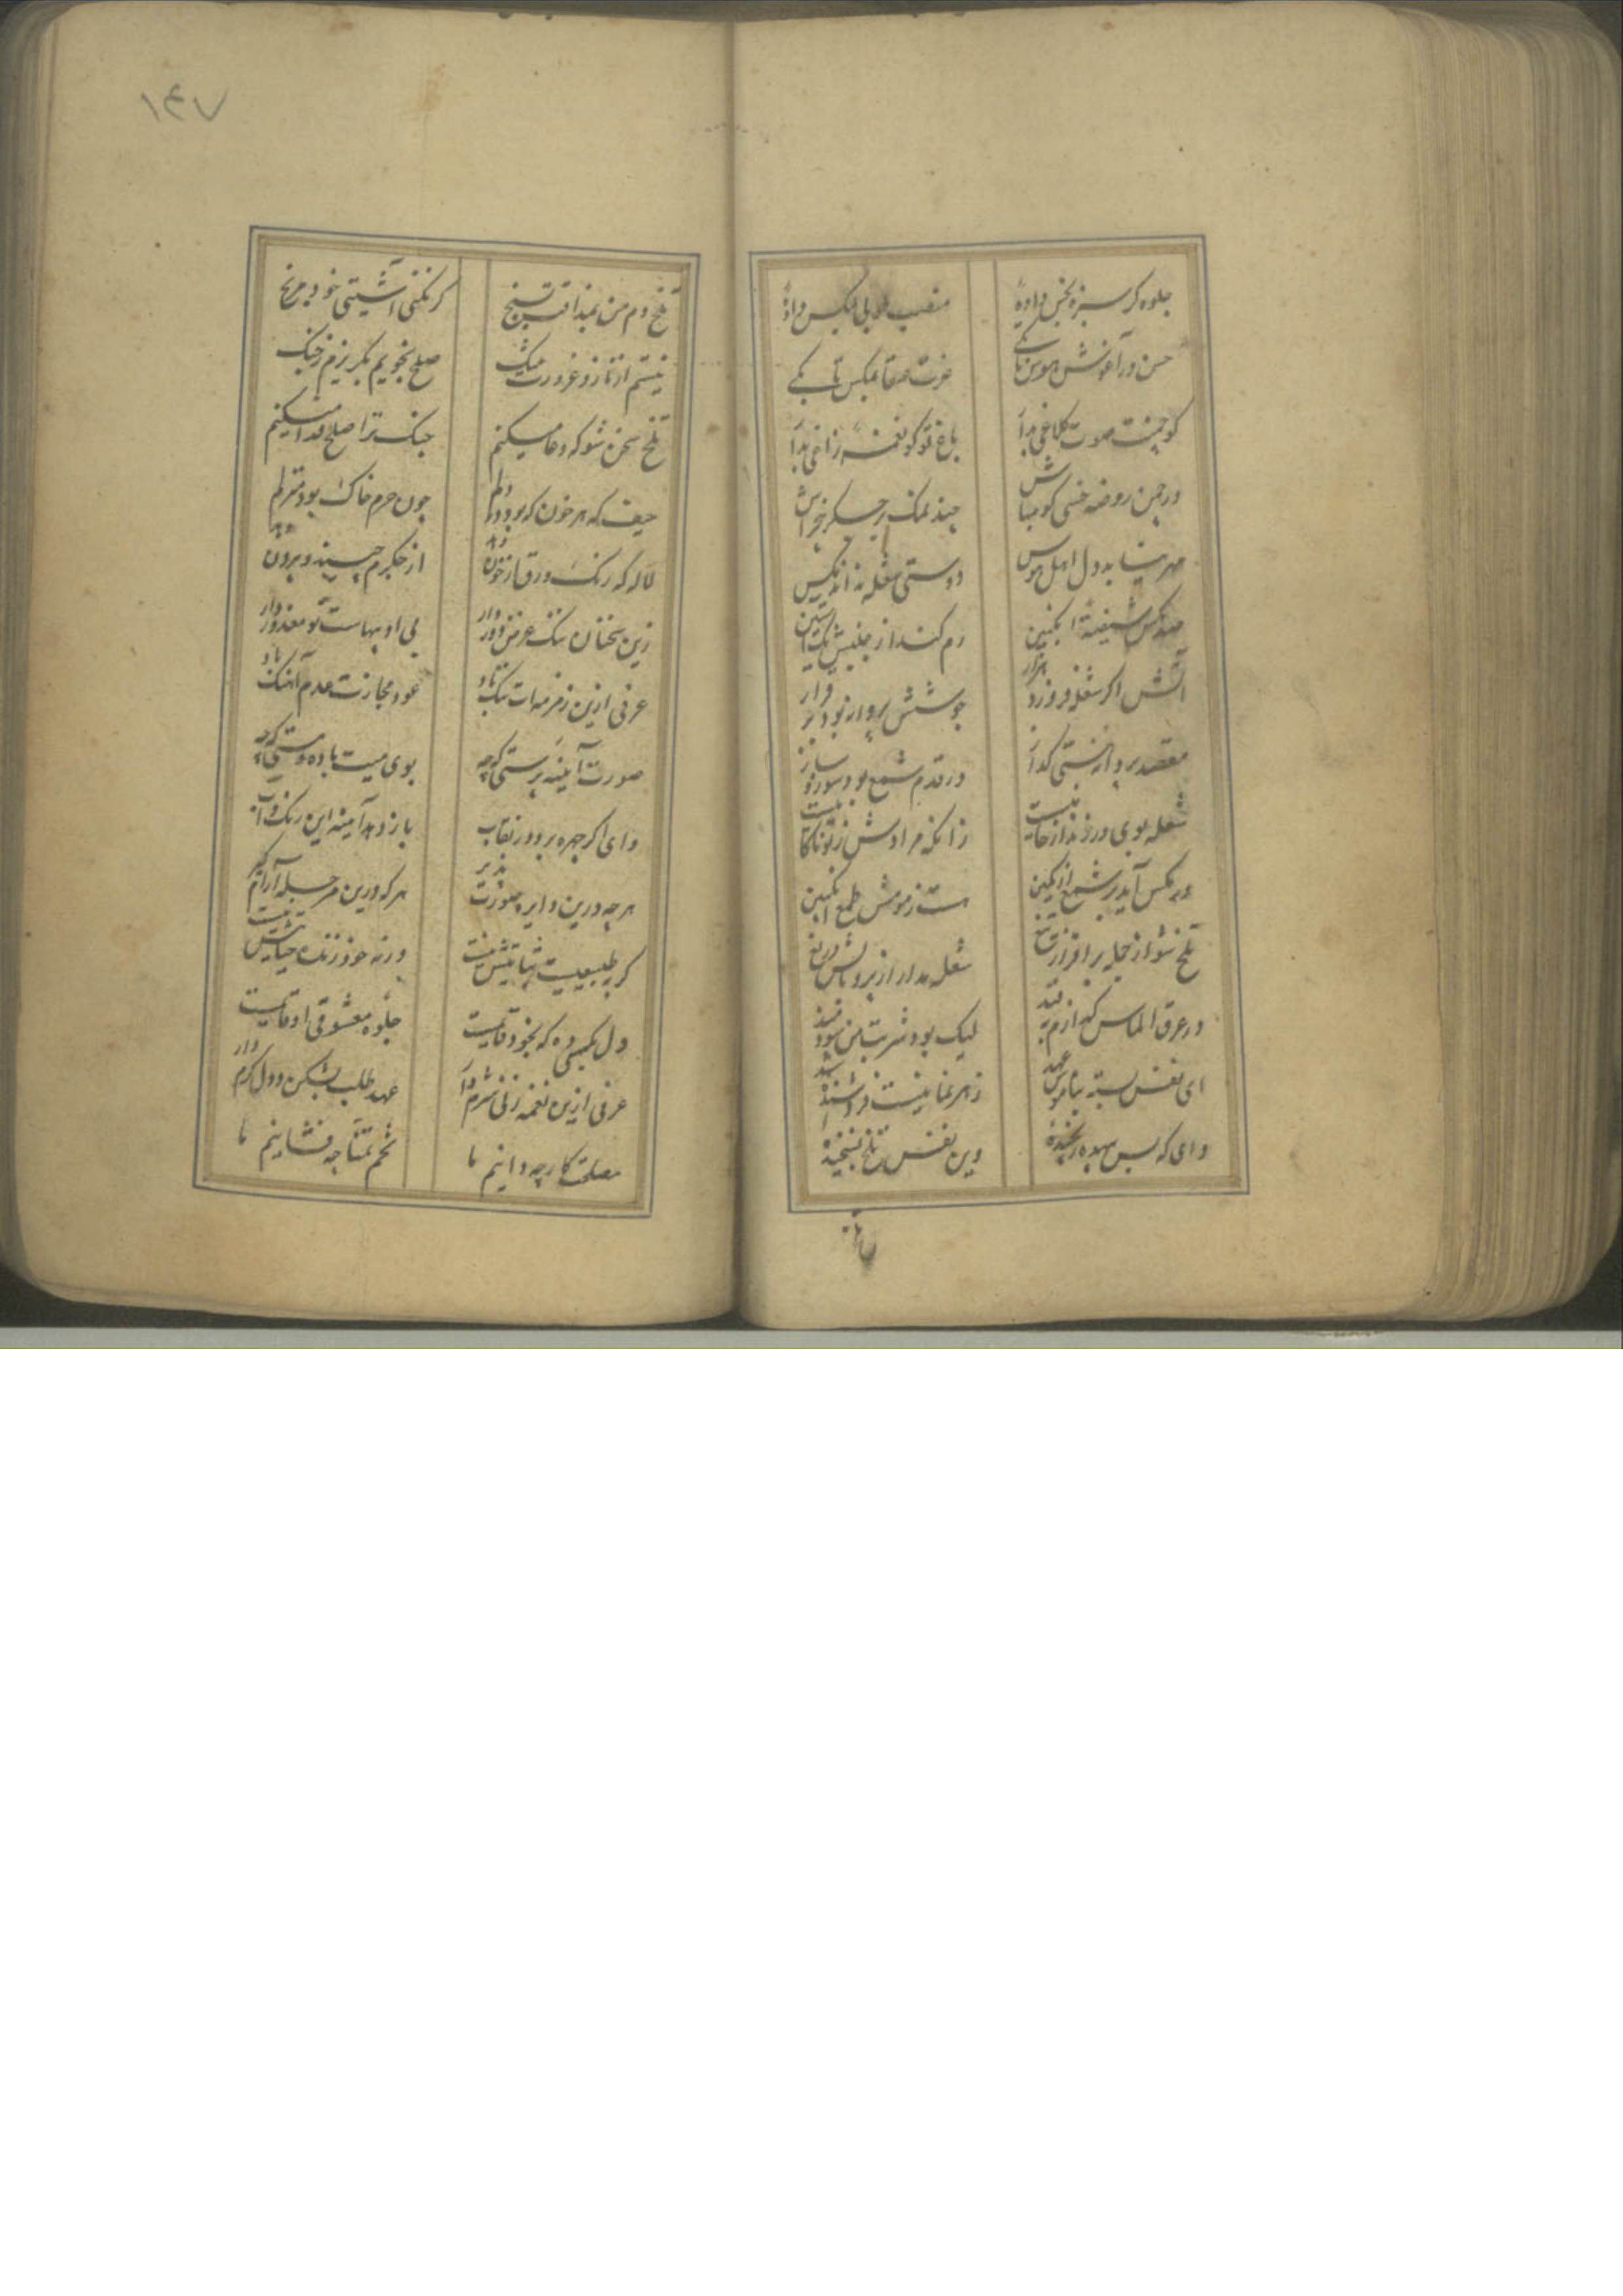 جلوه کر سبزه بخس داده
منصب طوبی بکس داده
حسن در آغوش هوس تا بکی
عزت عنقا بمکس تا بکی
کو چمنت صوت کلاغی بدار
باغ تو کو نغمه زاغی بدار
در چمن روضه خسی کو مباش
چند نمک بر جکر خراش
مهر نیابد دل اهل هوس
دوستی شعله نداند مکس
صد مکس شیفته انکبین
رم کند از جنبش یک آستین
آتش اکر شعله فروزد هزار
جوشش پروانه بود بر قرار
مقصد پروانه هستی کداز
در قدم شمع بود سوز و ساز
شعله بوی ورزند از خامیست
زانکه مرادش ز تو ناکامیست
ور مکس آید بر شمع از کمین
هست ز مومش طمع انکبین
تلخ شو از حمله بر افراز تیغ
شعله مدار از پر و بالش دریغ
در عرق الماس کدازم
لیک بود شربت من سودمند
ای نفس بسته بناموس عهد
زهر نما نیست فروشنده شهد
وای که بس بیهده رنجیده
وین نفس تلخ نسنجیده
تلخ
تلخ دم من بمذاقت بسنج
کر نکنی آشتی خود مرنج
نیستم از ناز و غرورت بتنک
صلح بجویم بکریزم ز جنک
تلخ سخن شو که دعا میکنم
جنک ترا صلح فدا میکنم
حیف که هر خون که بود در دلم
چون حرم خاک بود منزلم
لاله که رنک ورق از خون
از جکرم چیند و بیرون دهد
زین سخنان ننک عرض دور دار
بی ادبیهاست تو معذور دار
عرفی ازین زمزمه ات ننک باد
عود مجازت عدم آهنک باد
صورت آئینه پرستی که چه
بوی می بیت باده و مستی که چه
وای اکر چهره برد در نقاب
باز دهد آینه این رنک و آب
هر چه درین دایره صورت پذیر
هر که درین مرحله آرام کیر
کر به طبیعیت ثباتیش نیست
ورنه خود زنده حیاتیش نیست
دل بکسی ده که بخود قایمست
جلوه معشوقی او دایمست
عرفی ازین نغمه زنی شرم دار
عهد طلب بشکن و دل کرم دار
مصلحت کار چه دانیم ما
تخم تمنا چه فشانیم ما
۱۴۷